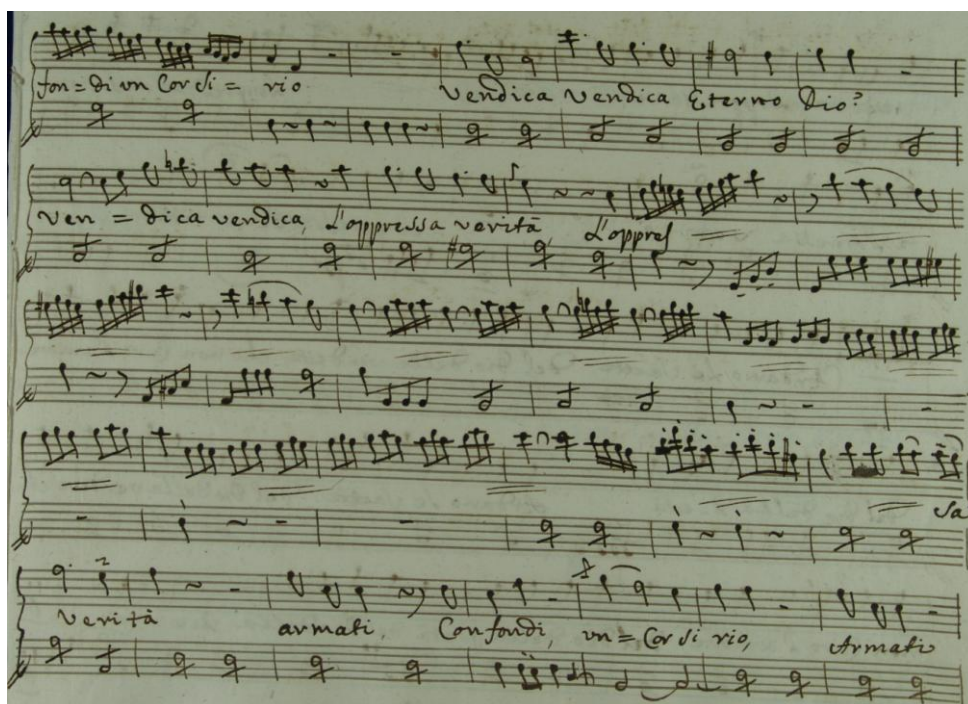 fon = di un Cor si = rio Vendica vendica Eterno Dio?
Ven = dica vendica, L'oppressa verità L'oppres
sa
verità armati, Confondi, un = Cor si rio, Armati